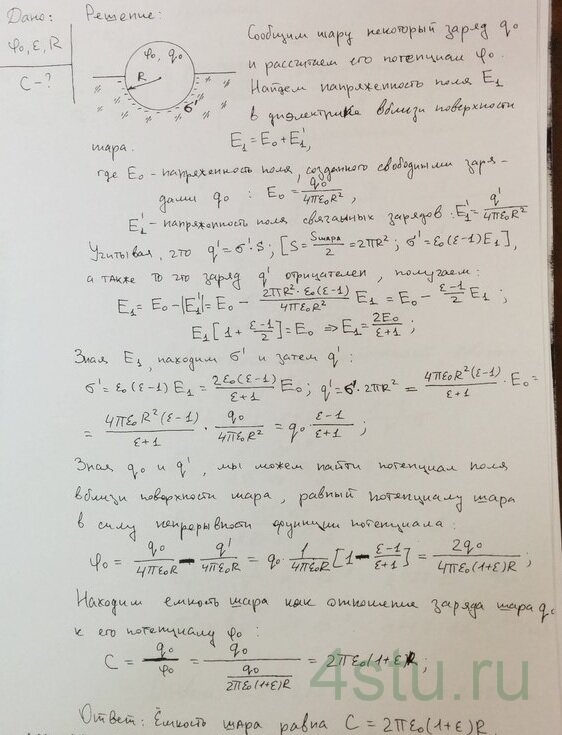 Дано: Решение:
φ₀, ε, R
C-?
φ₀, q₀
R
σ'
Сообщим шару некоторый заряд q₀
и рассчитаем его потенциал φ₀.
Найдем напряженность поля E₁
в диэлектрике вблизи поверхности
шара. E₁ = E₀ + E₁',
где E₀ - напряженность поля, созданного свободными заря-
дами q₀ : E₀ = q₀/4πε₀R²,
E₁' - напряженность поля связанных зарядов: E₁' = q'/4πε₀R²
Учитывая, что q' = σ'·S; [S = Sшара/2 = 2πR²; σ' = ε₀(ε-1)E₁],
а также то что заряд q' отрицателен, получаем:
E₁ = E₀ - |E₁'| = E₀ - 2πR²·ε₀(ε-1)/4πε₀R² E₁ = E₀ - ε-1/2 E₁ ;
E₁[1 + ε-1/2] = E₀ ⇒ E₁ = 2E₀/ε+1 ;
Зная E₁, находим σ' и затем q' :
σ' = ε₀(ε-1)E₁ = 2ε₀(ε-1)/ε+1 E₀ ; q' = σ'·2πR² = 4πε₀R²(ε-1)/ε+1 · E₀ =
= 4πε₀R²(ε-1)/ε+1 · q₀/4πε₀R² = q₀ ε-1/ε+1 ;
Зная q₀ и q', мы можем найти потенциал поля
вблизи поверхности шара, равный потенциалу шара
в силу непрерывности функции потенциала :
φ₀ = q₀/4πε₀R - q'/4πε₀R = q₀· 1/4πε₀R [1 - ε-1/ε+1] = 2q₀/4πε₀(1+ε)R ;
Находим емкость шара как отношение заряда шара q₀
к его потенциалу φ₀ :
C = q₀/φ₀ = q₀/q₀/2πε₀(1+ε)R = 2πε₀(1+ε)R ;
4stu.ru
Ответ: Ёмкость шара равна C = 2πε₀(1+ε)R.